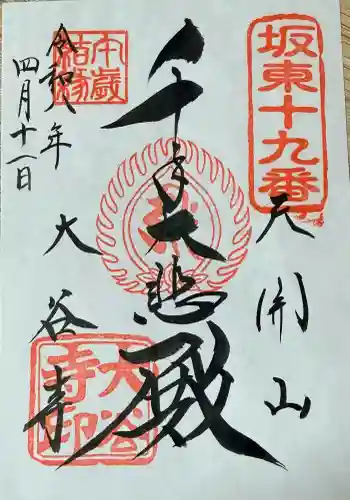 坂東十九番
天開山
千手大悲殿
午歳
結縁
大谷寺
大谷
寺印
令和八年
四月十一日